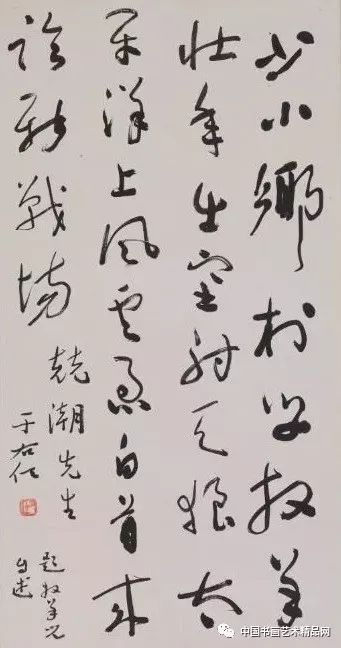 少小鄉村學牧羊
壯年出塞射天狼太
平洋上風雲急白首來
臨新戰場
兢潮先生
于右任
題牧羊兒
自述
中国书画艺术精品网